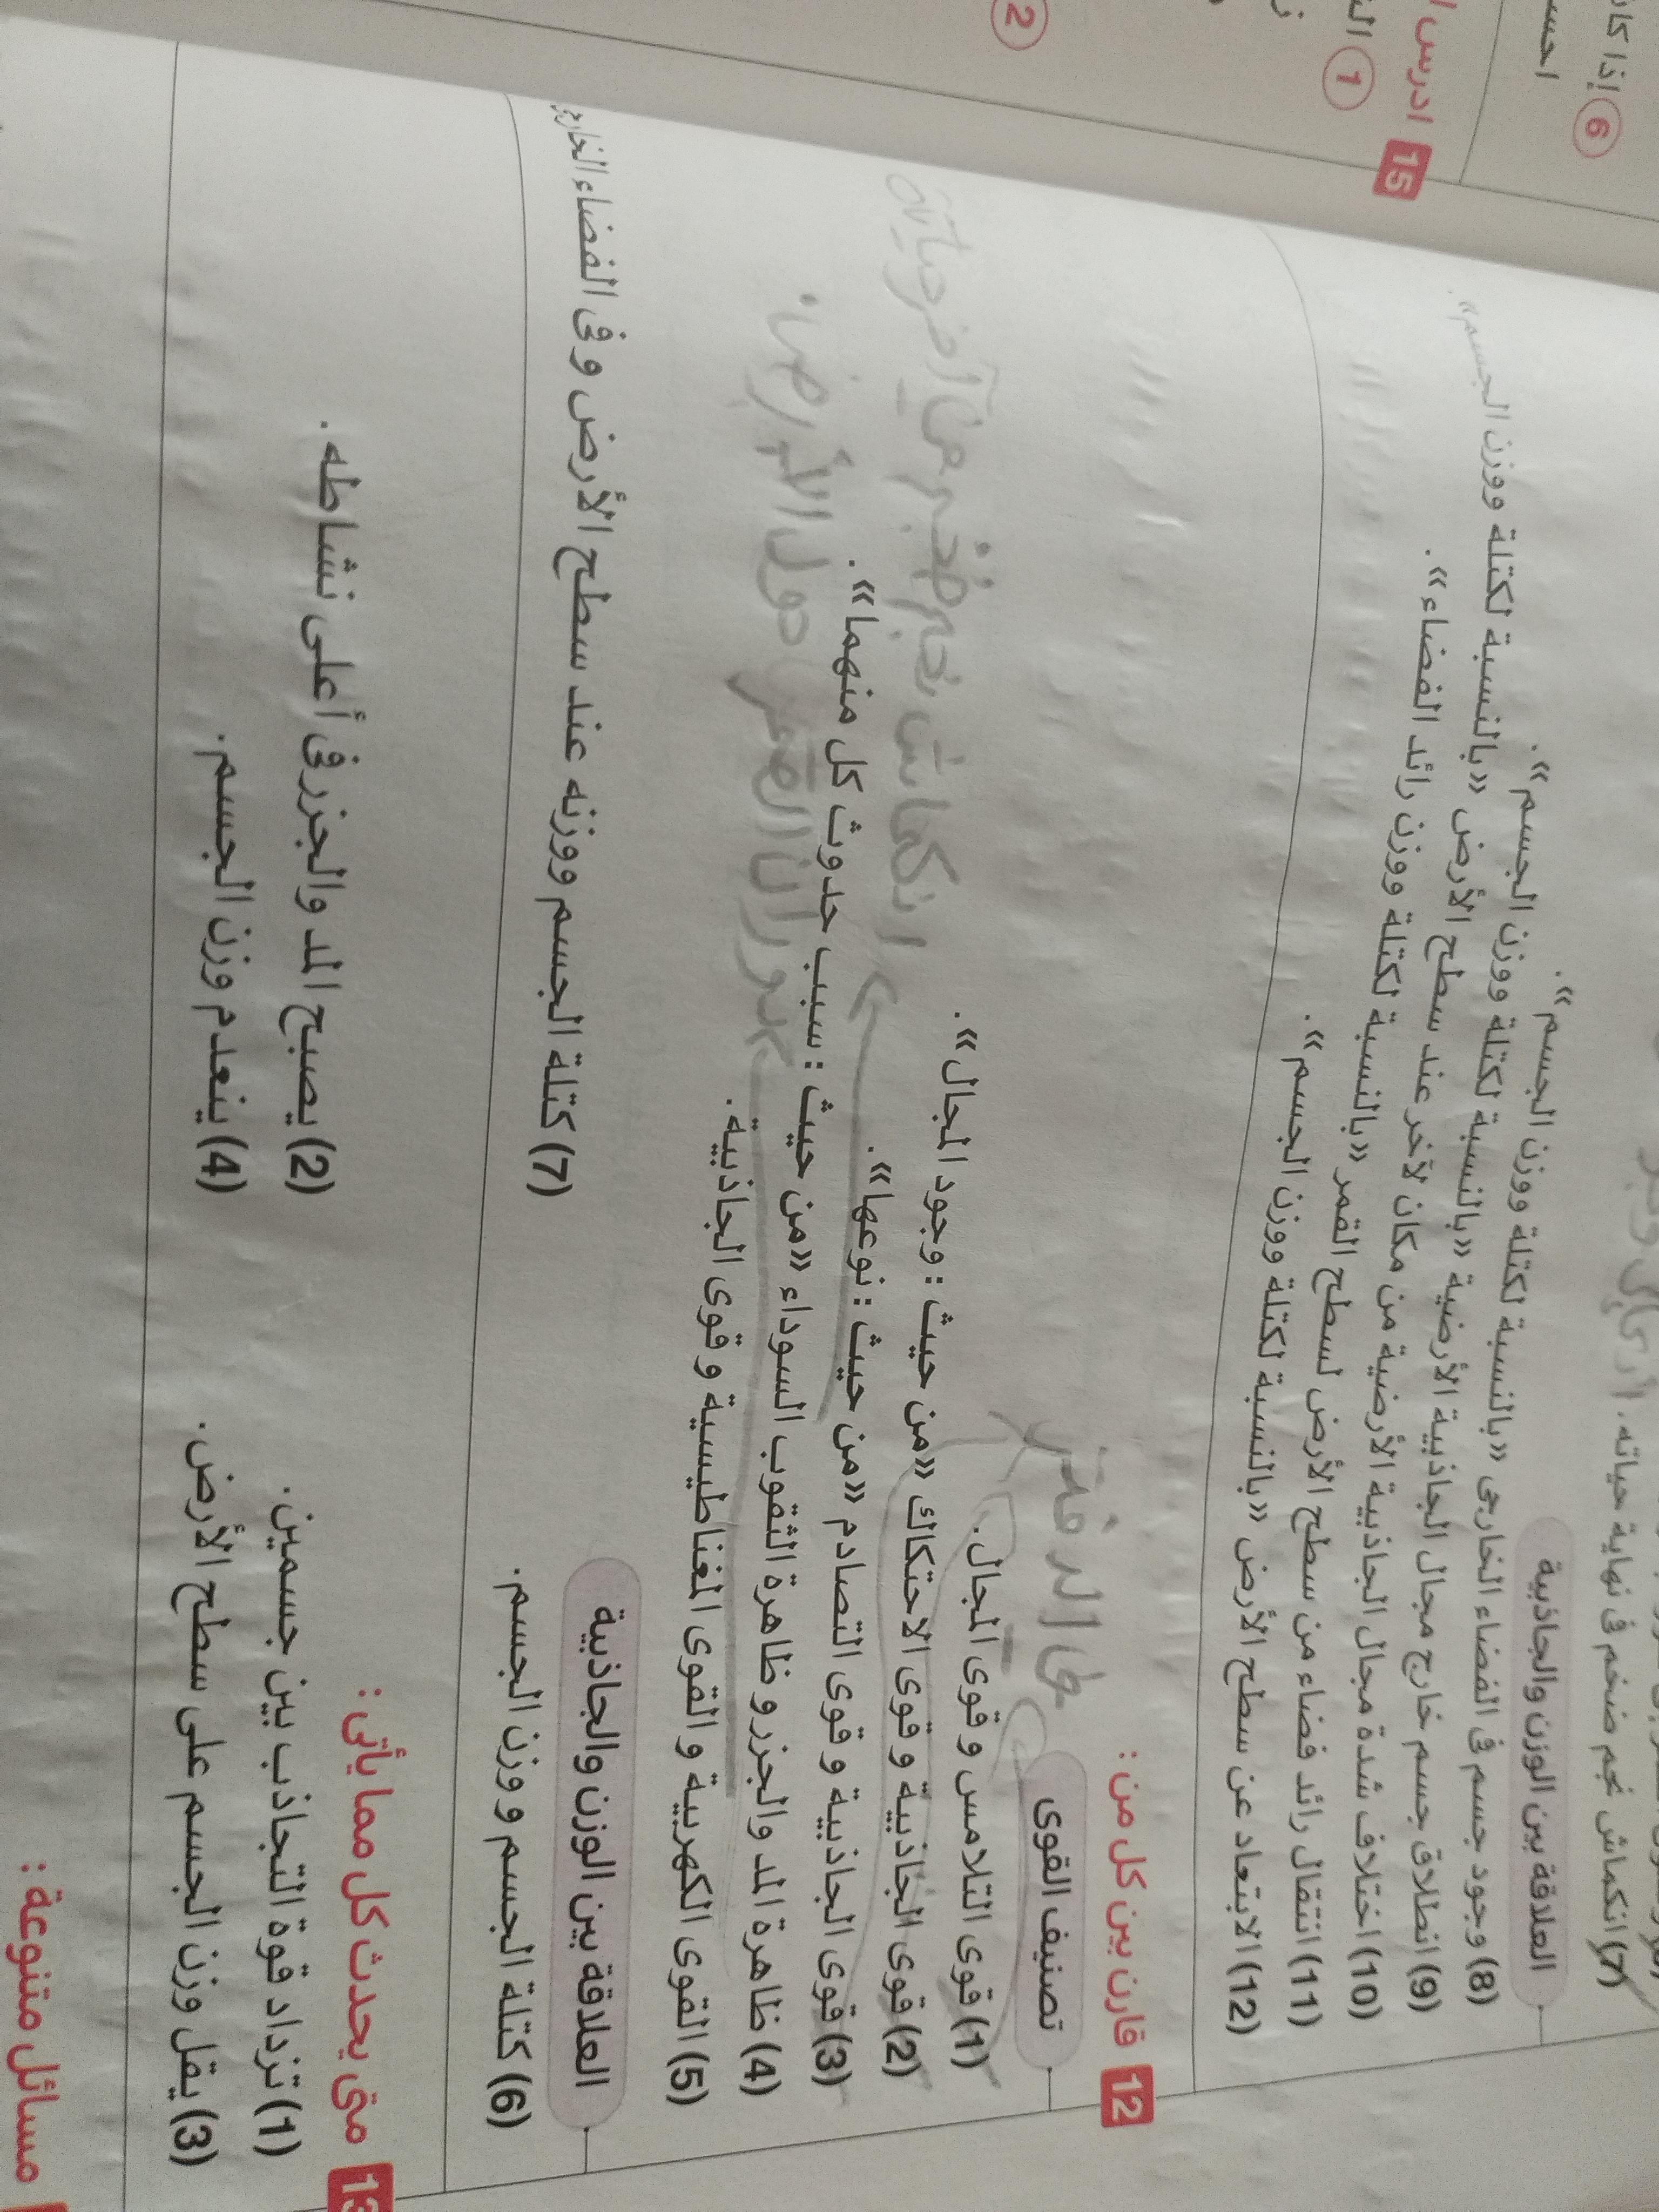 6 إذا كان
احسب
15 ادرس
1
2
(7) انكماش نجم ضخم فى نهاية حياته.
العلاقة بين الوزن والجاذبية
(8) وجود جسم فى الفضاء الخارجى «بالنسبة لكتلة ووزن الجسم».
(9) انطلاق جسم خارج مجال الجاذبية الأرضية «بالنسبة لكتلة ووزن الجسم».
(10) اختلاف شدة مجال الجاذبية الأرضية من مكان لآخر عند سطح الأرض «بالنسبة لكتلة ووزن الجسم».
(11) انتقال رائد فضاء من سطح الأرض لسطح القمر «بالنسبة لكتلة ووزن رائد الفضاء».
(12) الابتعاد عن سطح الأرض «بالنسبة لكتلة ووزن الجسم».
12 قارن بين كل من :
تصنيف القوى
(1) قوى التلامس و قوى المجال.
(2) قوى الجاذبية و قوى الاحتكاك «من حيث : وجود المجال».
(3) قوى الجاذبية و قوى التصادم «من حيث : نوعها».
(4) ظاهرة المد والجزر و ظاهرة الثقوب السوداء «من حيث : سبب حدوث كل منهما».
(5) القوى الكهربية و القوى المغناطيسية و قوى الجاذبية.
انكماش نجم ضخم من آخر حياته
دوران القمر حول الأرض.
العلاقة بين الوزن والجاذبية
(6) كتلة الجسم و وزن الجسم.
(7) كتلة الجسم ووزنه عند سطح الأرض و فى الفضاء الخارجى
13 متى يحدث كل مما يأتى :
(1) تزداد قوة التجاذب بين جسمين.
(2) يصبح المد والجزر فى أعلى نشاطه.
(3) يقل وزن الجسم على سطح الأرض.
(4) ينعدم وزن الجسم.
مسائل متنوعة :